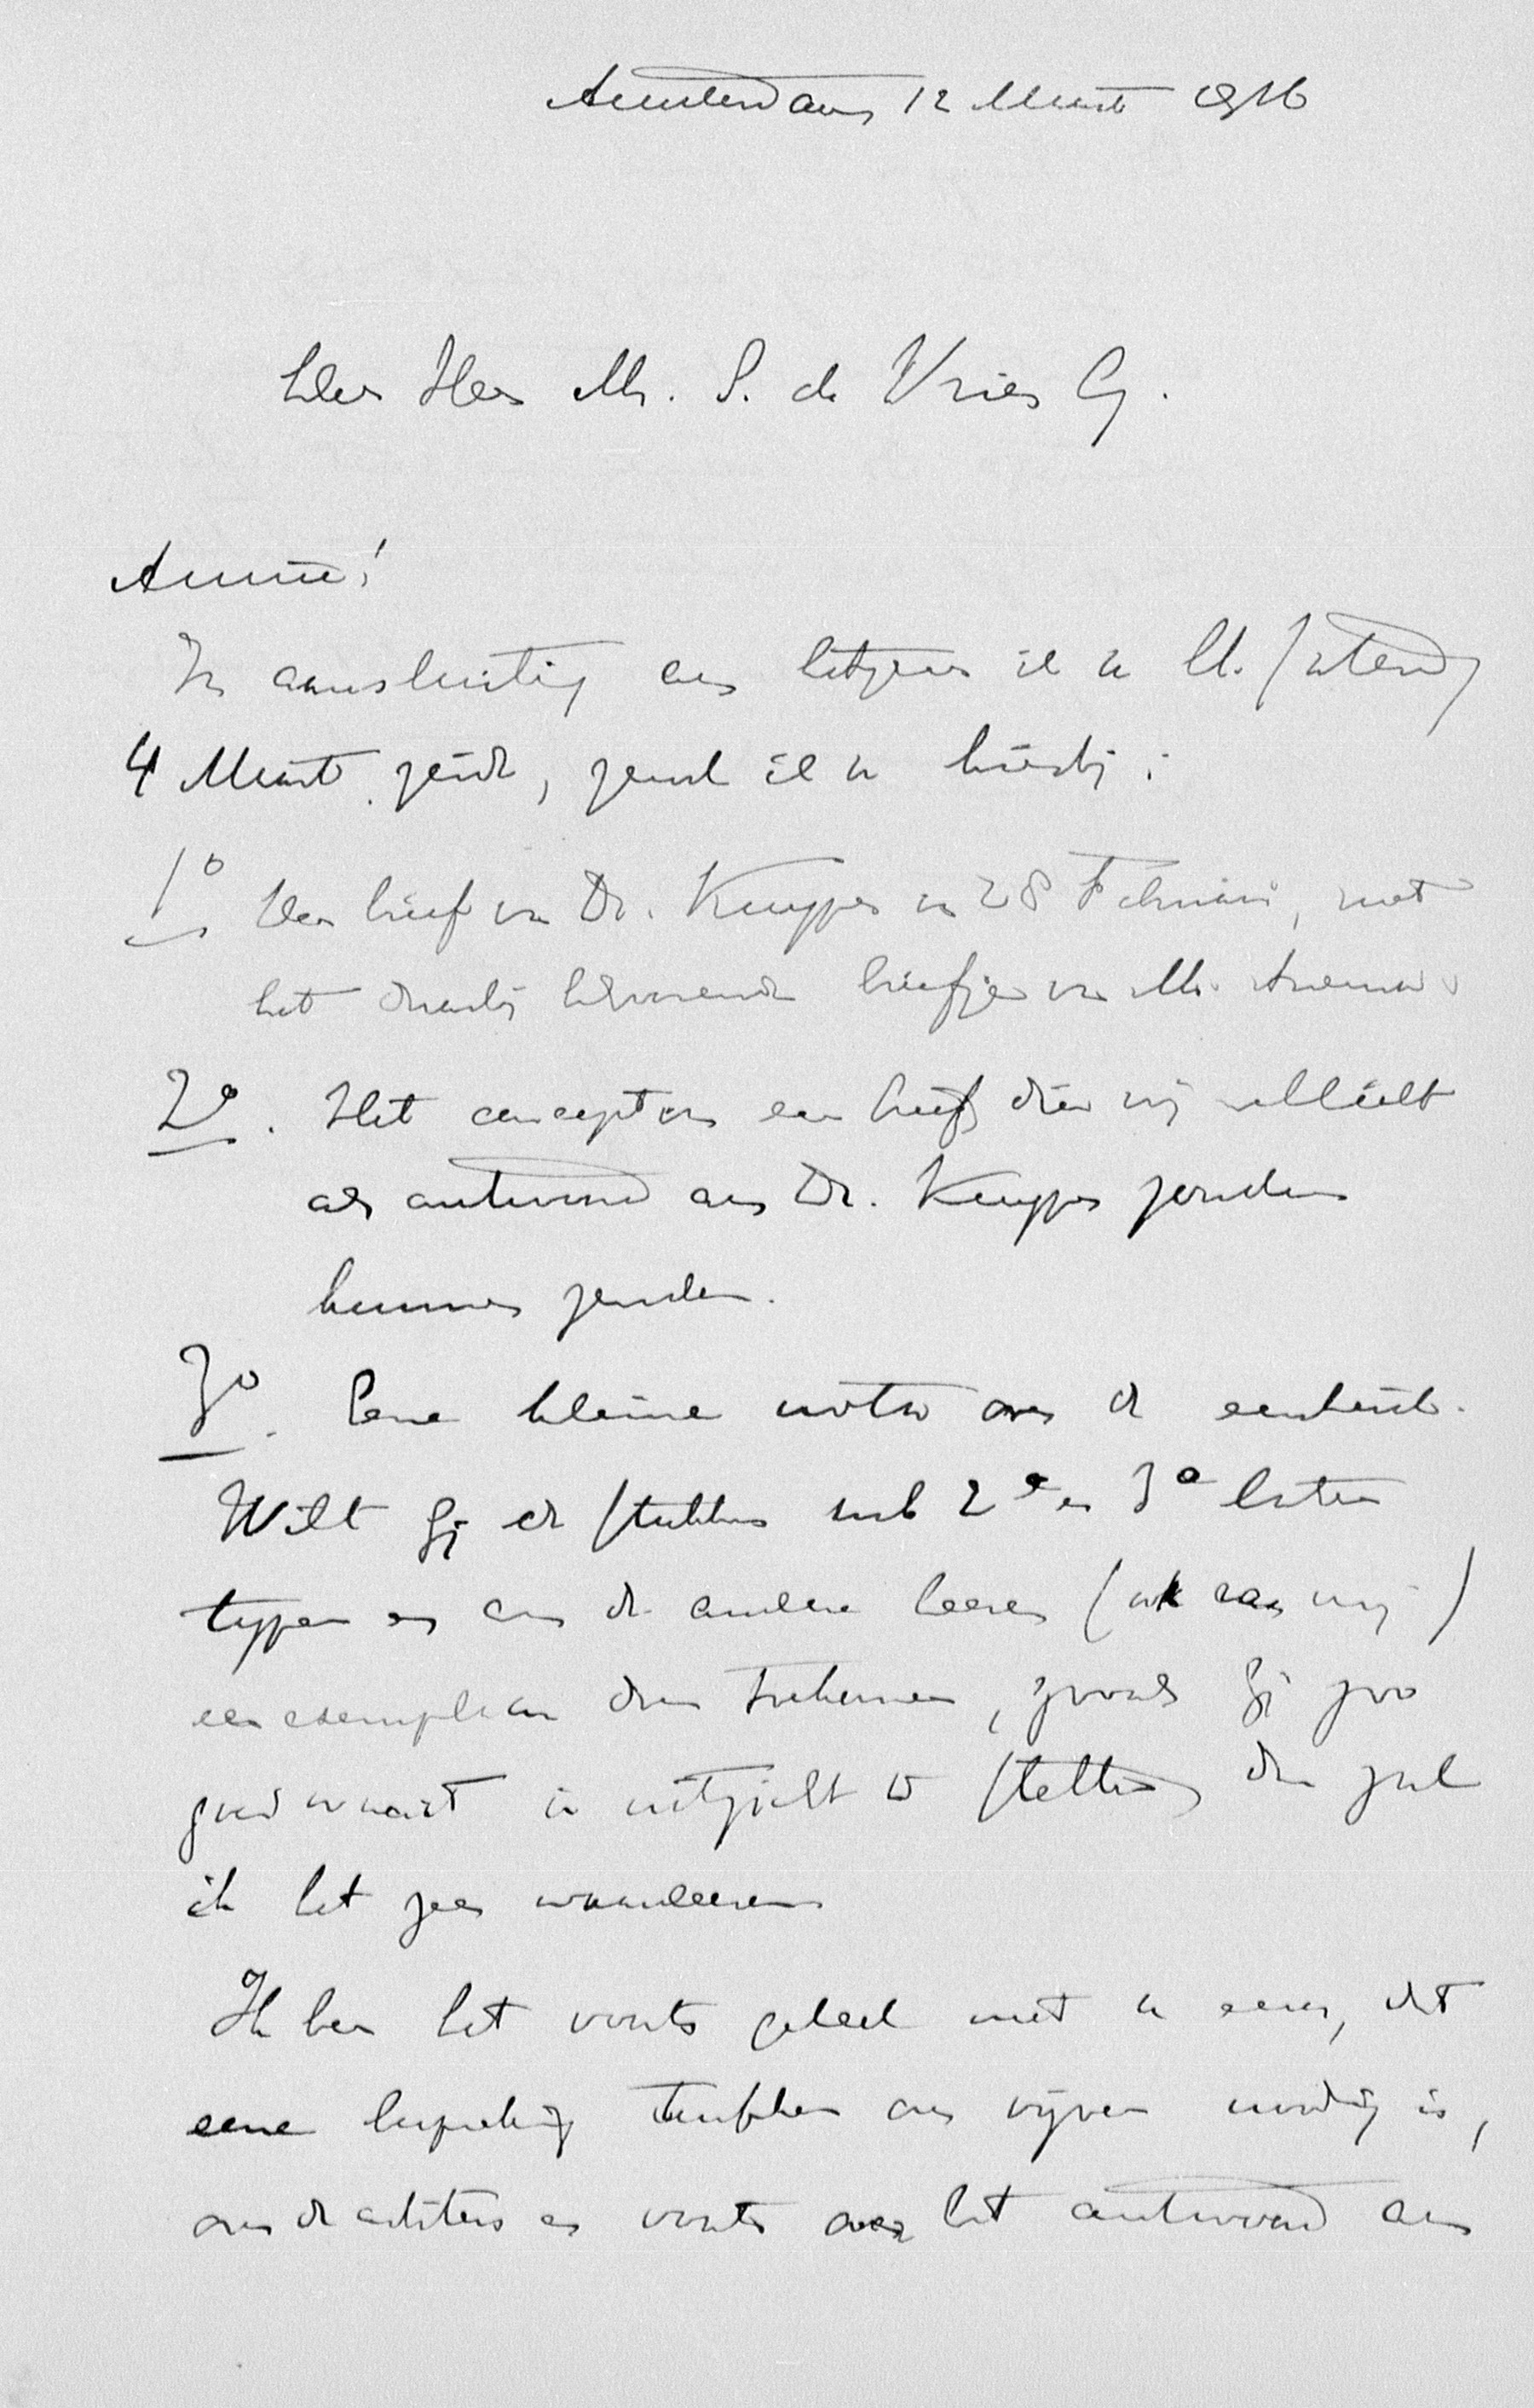 Amsterdam 12 Maart 1916
Den Heer Mr. S. de Vries Cz.
Amice!
In aansluiting aan hetgeen ik u ll. Zaterdag
4 Maart zeide, zend ik u hierbij:
1o Den brief van Dr. Kuyper van 28 Februari, met
het daarbij behoorende briefje van Mr. Anema.
2o. Het concept van een brief, dien wij wellicht
als antwoord aan Dr. Kuyper zouden
kunnen zenden.
3o. Eene kleine nota over de eenheid.
Wilt gij de stukken sub 2o en 3o laten
typen en aan de andere heeren (ook aan mij)
een exemplaar doen toekomen, zooals gij zoo
goed waart in uitzicht te stellen, dan zal
ik het zeer waardeeren
Ik ben het voorts geheel met u eens, dat
eene bespreking tusschen ons vijven noodig is,
over de artikelen en voorts over het antwoord aan